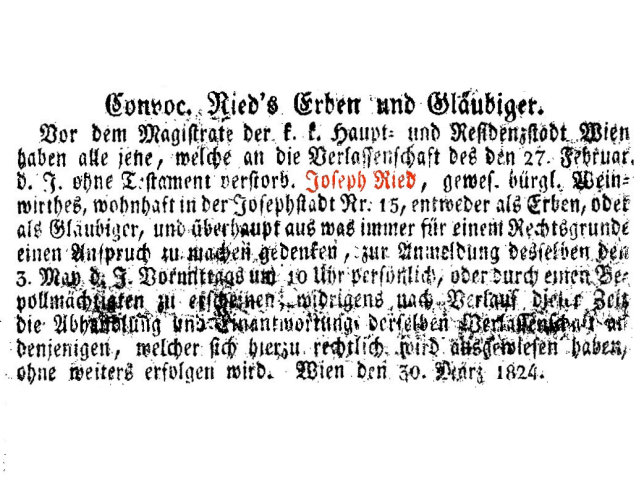 Convoc. Ried's Erben und Gläubiger.
Vor dem Magistrate der k. k. Haupt- und Residenzstadt Wien
haben alle jene, welche an die Verlassenschaft des den 27. Februar.
d. J. ohne Testament verstorb. Joseph Ried, gewes. bürgl. Wein-
wirthes, wohnhaft in der Josephstadt Nr. 15, entweder als Erben, oder
als Gläubiger, und überhaupt aus was immer für einem Rechtsgrunde
einen Anspruch zu machen gedenken, zur Anmeldung desselben den
3. May d. J. Vormittags um 10 Uhr persönlich, oder durch einen Be-
vollmächtigten zu erscheinen, widrigens nach Verlauf dieser Zeit
die Abhandlung und Einantwortung derselben Verlassenschaft an
denjenigen, welcher sich hierzu rechtlich wird ausgewiesen haben,
ohne weiters erfolgen wird. Wien den 30. März 1824.